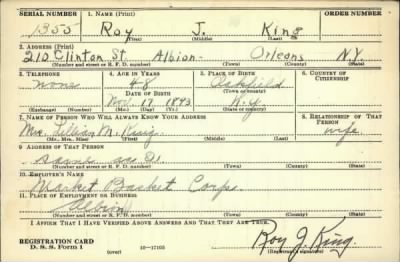 SERIAL NUMBER 1. NAME (Print) ORDER NUMBER
1355 Roy J. King
(First) (Middle) (Last)
2. ADDRESS (Print)
210 Clinton St. Albion- Orleans N.Y.
(Number and street or R. F. D. number) (Town) (County) (State)
3. TELEPHONE 4. AGE IN YEARS 5. PLACE OF BIRTH 6. COUNTRY OF CITIZENSHIP
none 48 Oakfield
DATE OF BIRTH (Town or county)
Nov. 17 1893 N.Y.
(Exchange) (Number) (Mo.) (Day) (Yr.) (State or country)
7. NAME OF PERSON WHO WILL ALWAYS KNOW YOUR ADDRESS 8. RELATIONSHIP OF THAT PERSON
Mrs. Lillian M. King wife.
(Mr., Mrs., Miss) (First) (Middle) (Last)
9. ADDRESS OF THAT PERSON
same as 2.
(Number and street or R. F. D. number) (Town) (County) (State)
10. EMPLOYER'S NAME
Market Basket Corp.
11. PLACE OF EMPLOYMENT OR BUSINESS
Albion
(Number and street or R. F. D. number) (Town) (County) (State)
I AFFIRM THAT I HAVE VERIFIED ABOVE ANSWERS AND THAT THEY ARE TRUE.
Roy J. King.
REGISTRATION CARD
D. S. S. Form 1 (over) 16—17105 (Registrant's signature)